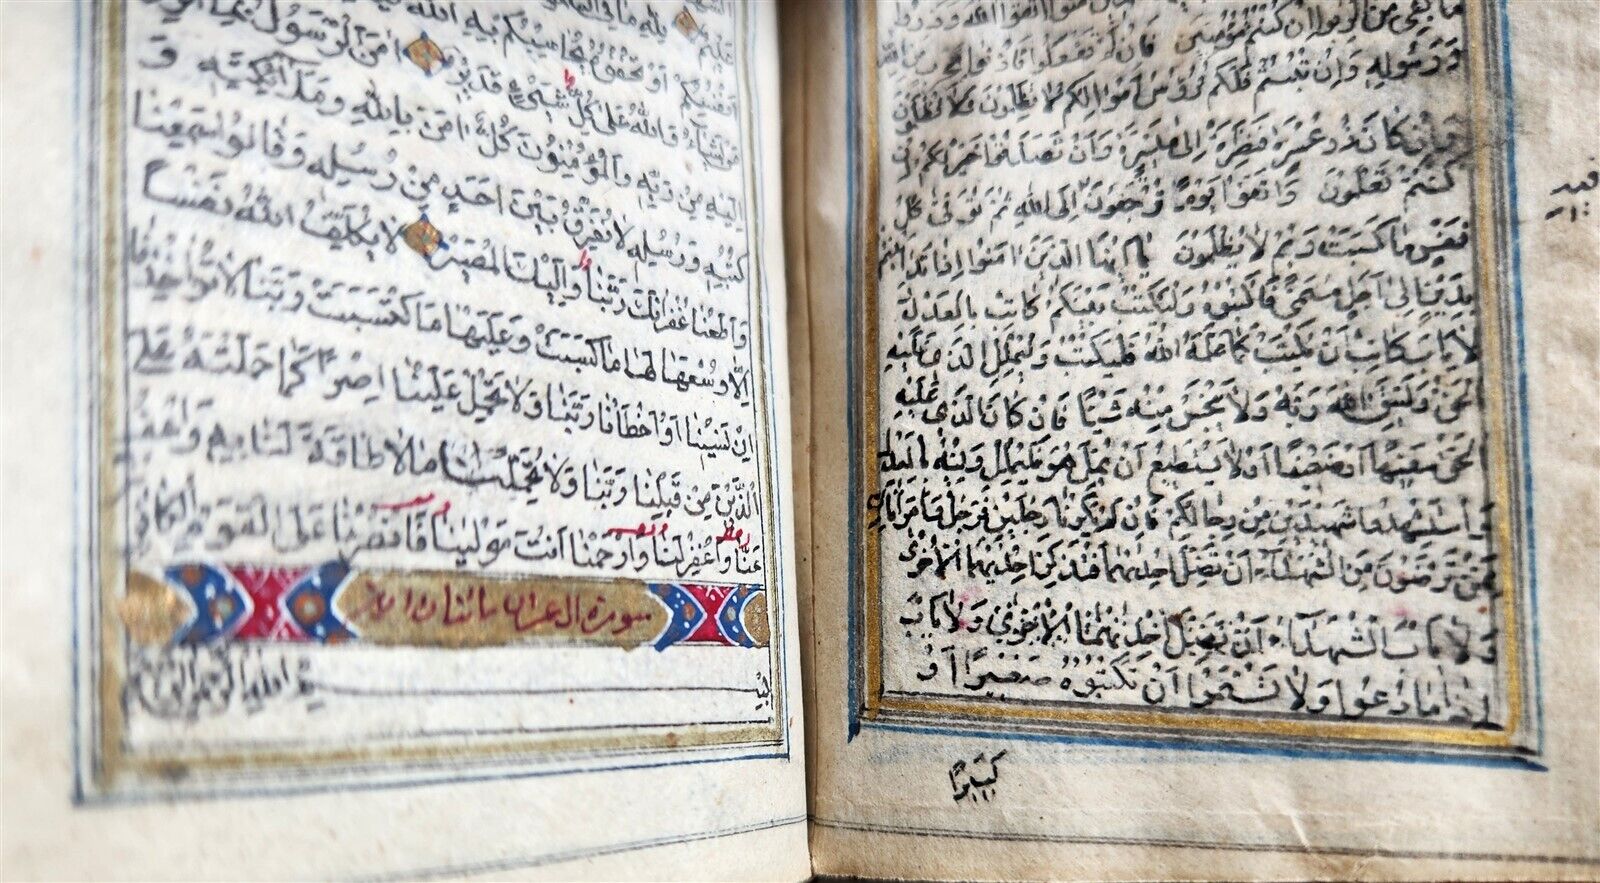 ما بقي من الربوا ان كنتم مؤمنين فان لم تفعلوا فاذنوا بحرب من الله
ورسوله وان تبتم فلكم رؤس اموالكم لا تظلمون ولا تظلمون
وان كان ذو عسرة فنظرة الى ميسرة وان تصدقوا خير لكم ان
كنتم تعلمون واتقوا يوما ترجعون فيه الى الله ثم توفى كل
نفس ما كسبت وهم لا يظلمون يا ايها الذين امنوا اذا تداينتم
بدين الى اجل مسمى فاكتبوه وليكتب بينكم كاتب بالعدل و
لا ياب كاتب ان يكتب كما علمه الله فليكتب وليملل الذي عليه
الحق وليتق الله ربه ولا يبخس منه شيئا فان كان الذي عليه
الحق سفيها او ضعيفا او لا يستطيع ان يمل هو فليملل وليه بالعدل
واستشهدوا شهيدين من رجالكم فان لم يكونا رجلين فرجل وامراتان
ممن ترضون من الشهداء ان تضل احديهما فتذكر احديهما الاخرى
ولا ياب الشهداء ان تضل احديهما الاخرى ولا ياب
اذا ما دعوا ولا تسئموا ان تكتبوه صغيرا او
كبيرا
عليم لله ما في السموات
انفسكم او تخفوه يحاسبكم به الله
من يشاء والله على كل شيء قدير امن الرسول بما انزل
اليه من ربه والمؤمنون كل امن بالله وملائكته و
كتبه ورسله لا نفرق بين احد من رسله وقالوا سمعنا
واطعنا غفرانك ربنا واليك المصير لا يكلف الله نفسا
الا وسعها لها ما كسبت وعليها ما اكتسبت ربنا لا تؤاخذنا
ان نسينا او اخطأنا ربنا ولا تحمل علينا اصرا كما حملته على
الذين من قبلنا ربنا ولا تحملنا ما لا طاقة لنا به واعف
عنا واغفر لنا وارحمنا انت مولينا فانصرنا على القوم الكافرين
سورة ال عمران مائتان اية
بسم الله الرحمن الرحيم